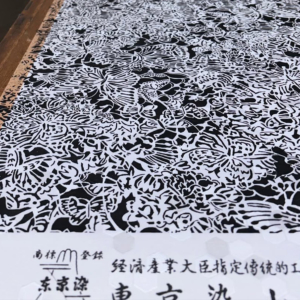 商標 登録
东京染
経済産業大臣指定伝統的工
東京染小